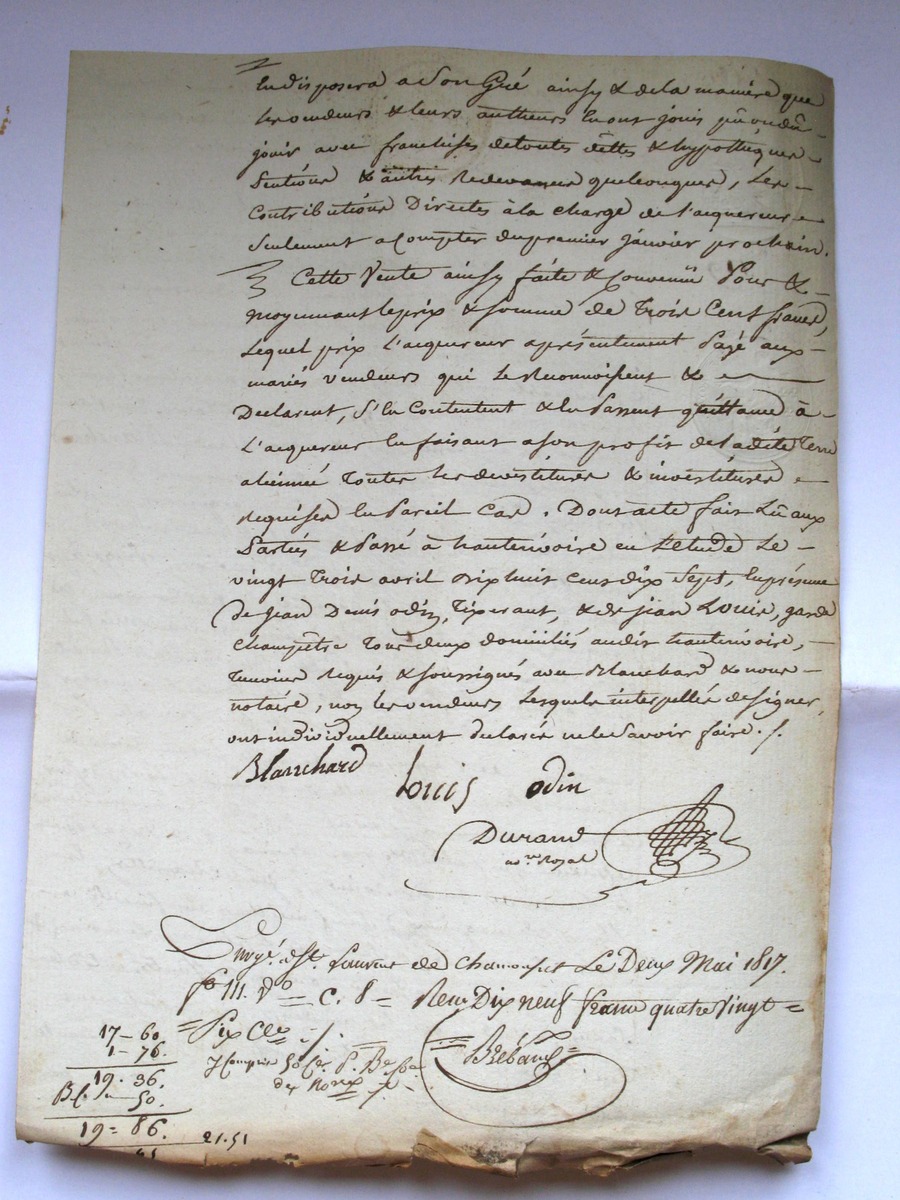 En disposera a Son Gré ainsy & de la manière que
les vendeurs & leurs autheurs en ont jouis pû ou dû
jouir avec franchises de toutes dettes & hypothèques
Servitions & autres Redevances quelconques, Les
Contributions Directes à la charge de l'acquereur
Seulement a Compter du premier janvier prochain.
Cette Vente ainsy faite & Convenüe Pour &
moyennant le prix & Somme de Trois Cent francs,
Lequel prix L'acquereur a présentement Payé aux
mariés vendeurs qui Le Reconnoissent &
Declarent, S'en Contentent & en Passent quittance à
L'acquereur en faisant a son profit de la dite Terre
alienneé Toutes les devestitures & investitures
Requises en Pareil Cas. Dont acte fait Lû aux
Parties & Passé à hauterivoire en L'etude Le
vingt Trois avril dix huit cent dix Sept, en présence
De Jean Denis odin, Tisserant, & de Jean Louis, garde
Champetre Tous deux domiciliés audit hauterivoire,
Temoins Requis & soussignés avec Blanchard & nous
notaire, non les vendeurs Lesquels interpellés de signer,
ont individuellement declaré ne le Savoir faire. /.
Blanchard
Louis odin
Durand
no.re Royal
Enregé. à St. Laurent de Chamousset Le Deux Mai 1817.
fo 111. Vo C. 8 Reçu Dix neuf francs quatre Vingt
Six Ces /.
y Compris 50 Ces P.
17-60
1-76.
19.36
50.
19=86.
21.51